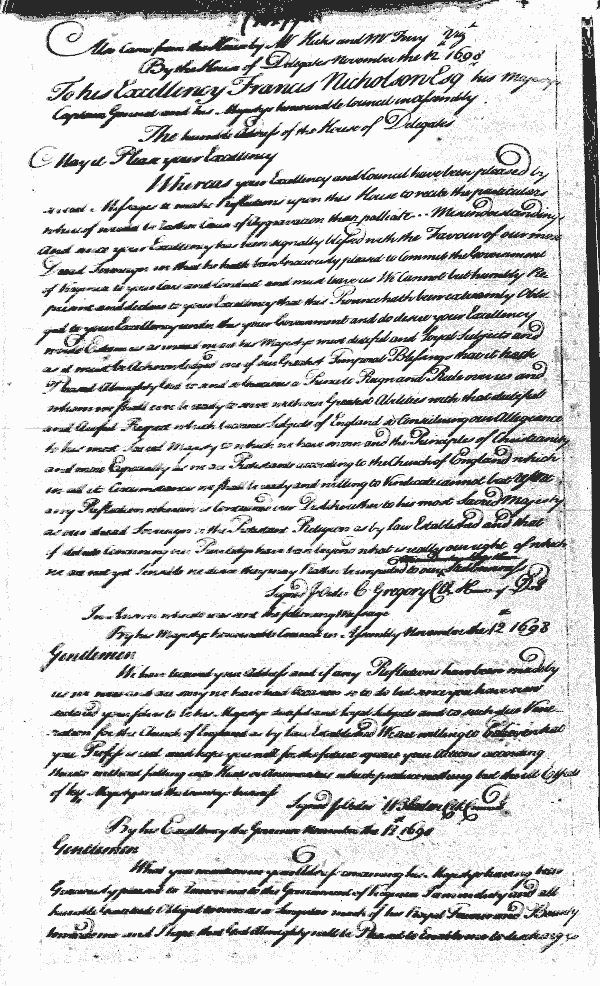 Also Came from the House by Mr Hicks and Mr Frery Vizt
By the House of Delegates November the 12th 1698
To his Excellency Francis Nicholson Esq his Majestys
Captain General and his Majestys honourable Council in assembly
The humble Address of the House of Delegates
May it Please your Excellency
Whereas your Excellency and Council have been pleased by
Messages to make Reflections upon this House to recite the particulars
whereof would be rather Cause of Aggravation than palliate Misunderstanding
And since your Excellency has been signally blessed with the Favour of our most
Dread Sovereign in that he hath been Graciously pleased to Commit the Government
of Virginia to your Care and Conduct and must leave us We Cannot but humbly Re
present and declare to your Excellency that this Province hath been extreamly Obli
ged to your Excellency under this your Government and do desire your Excellency
would Esteem us as we are his Majestys most dutiful and loyal Subjects and
as it must be Acknowledged one of our Greatest Temporal Blessings that it hath
Pleased Almighty God to send so Gracious a Prince to Reign and Rule over us and
whom we shall ever be ready to serve with our Greatest Abilities with that dutiful
and Awful Respect which becomes Subjects of England Considering our Allegiance
to his most Sacred Majesty to which we have sworn and the Principles of Christianity
and more Especially as we are Protestants according to the Church of England which
in all Circumstances we shall be ready and willing to Vindicate cannot but resent
any Reflection wherein is Concerned our Duties either to his most Sacred Majesty
as our dread Sovereign or the Protestant Religion as by law Established and that
if debates Concerning our Priviledges have been beyond what is really our right of which
we are not yet Sensible we desire they may rather be imputed to our
Signed p Order C Gregory Cl House of Del
In Answer whereto was sent the following Message
By his Majestys honourable Council in Assembly November the 12th 1698
Gentlemen
We have received your Address and if any Reflections have been made by
us we now are sorry we have had Occasion so to do but since you have now
declared yourselves to be his Majestys dutiful and loyal Subjects and to such due Vene
ration for the Church of England as by law Established We are willing to believe what
you Profess is real and hope you will for the future square your Actions according
thereto without falling into Heats or Animosities which produce nothing but the ill Effects
of his Majesty and the Country
Signed p Order W Bladen Cl Council
By his Excellency the Governor November the 12th 1698
Gentlemen
What you mention in your Address concerning his Majestys having been
Graciously pleased to Favour me to the Government of Virginia I am in duty and all
humble Gratitude Obliged to own as a Singular mark of his Royal Favour and Bounty
towards me and I hope that God Almighty will be Pleased to Enable me to discharge